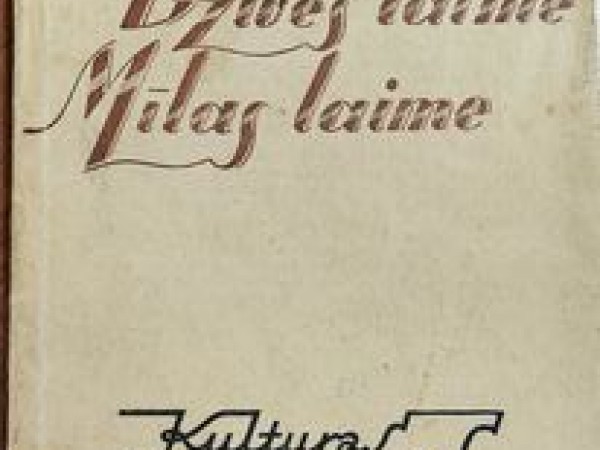 Dzīves laime
Mīlas laime
Kulturas